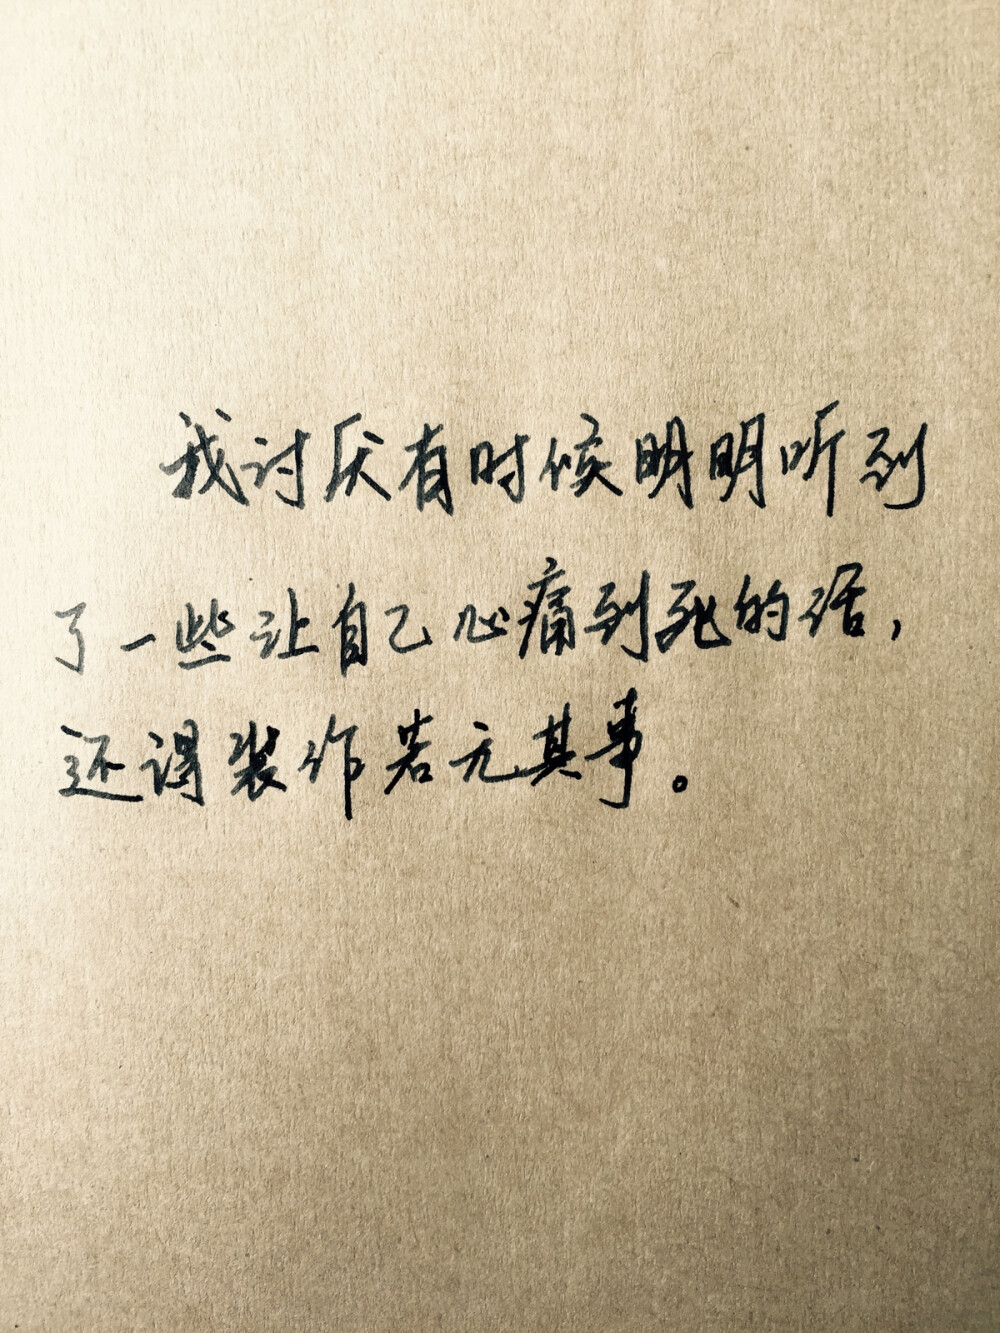 我讨厌有时候明明听到
了一些让自己心痛到死的话，
还得装作若无其事。